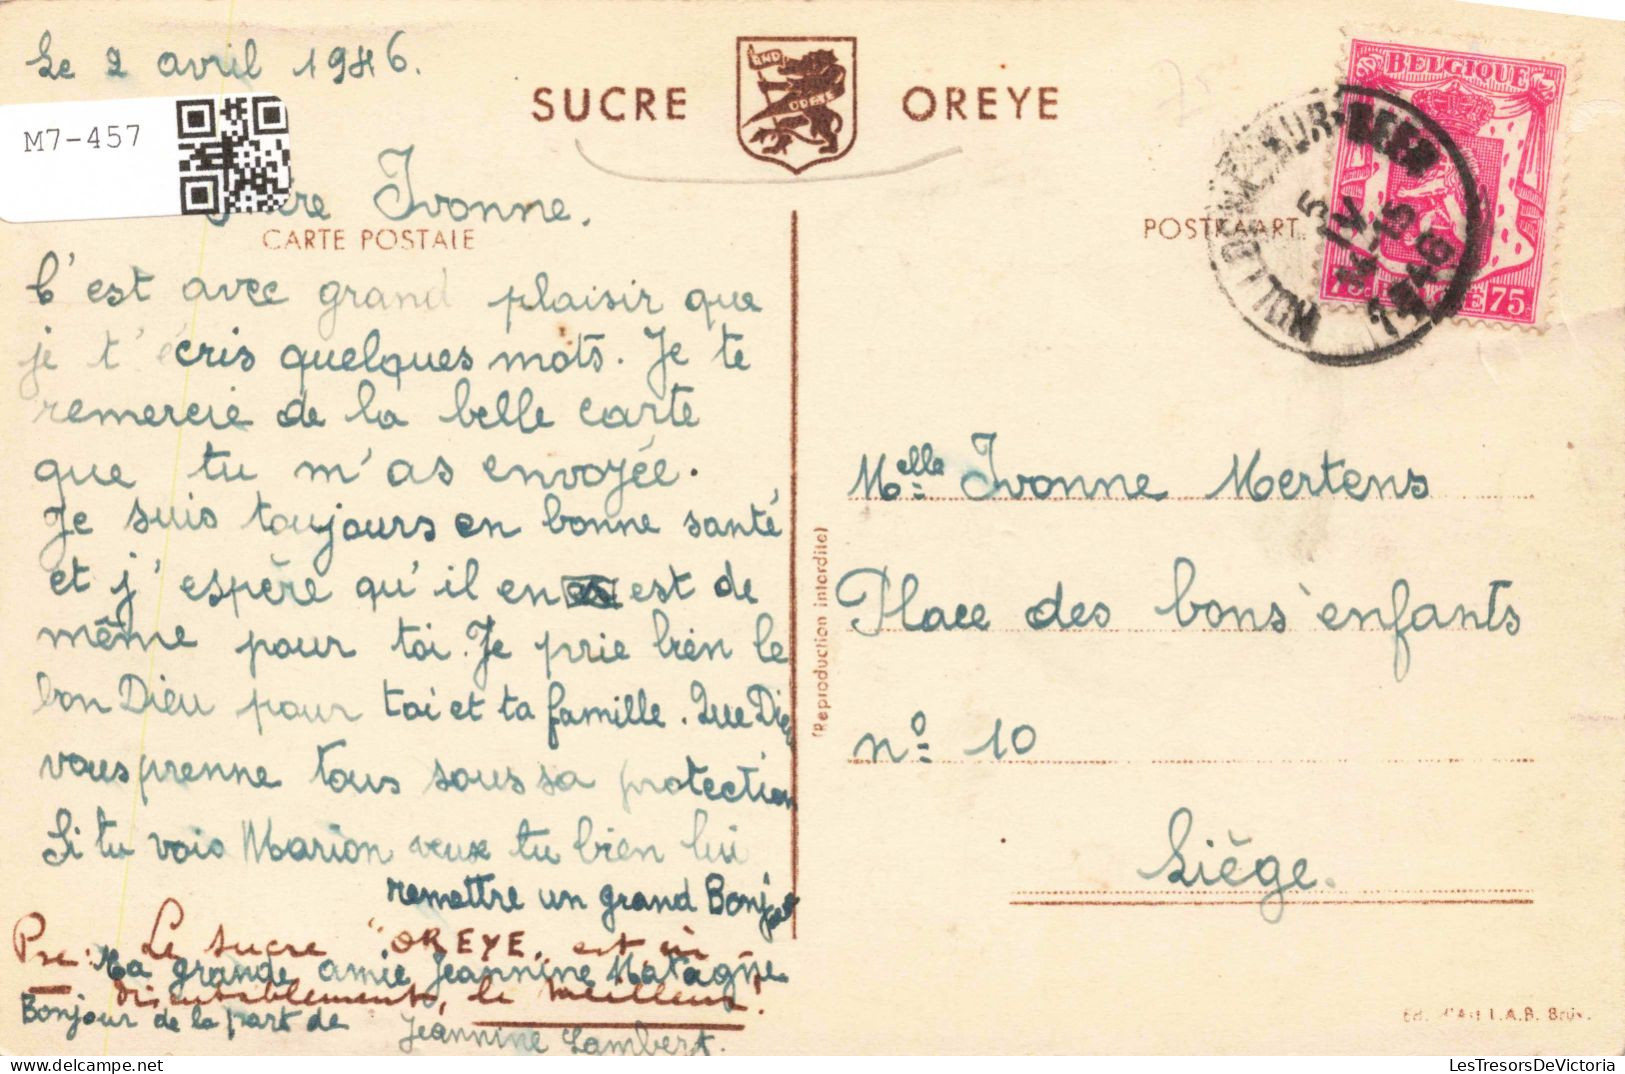 Le 2 avril 1946.
M7-457
SUCRE OREYE
BELGIQUE
75c BELGIË 75c
CARTE POSTALE
POSTKAART
Ivonne,
C'est avec grand plaisir que
je t'écris quelques mots. Je te
remercie de la belle carte
que tu m'as envoyée.
Je suis toujours en bonne santé
et j'espère qu'il en est de
même pour toi. Je prie bien le
bon Dieu pour toi et ta famille. Que Dieu
vous prenne tous sous sa protection
Si tu vois Marion veux tu bien lui
remettre un grand Bonjour
Le sucre "OREYE, est
Ta grande amie Jeannine Matagne
indiscutablement, le meilleur.
Bonjour de la part de Jeannine Lambert.
(Reproduction interdite)
Melle Ivonne Mertens
Place des bons enfants
no 10
Liège.
Ed. d'Art L.A.B. Brux.
LesTresorsDeVictoria